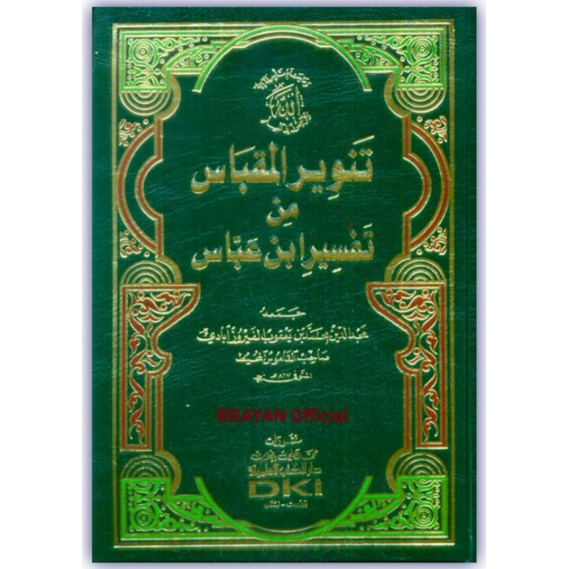 الله
تَنوير المقبَاس
مِن
تَفسِير ابن عَبّاس
جَمعه
مجد الدين محمد بن يعقوب الفيروزآبادي
صاحب القاموس المحيط
المتوفى ٨١٧ هـ
BRAYAN Official
منشورات
محمد علي بيضون
دار الكتب العلمية
DKi
بيروت - لبنان